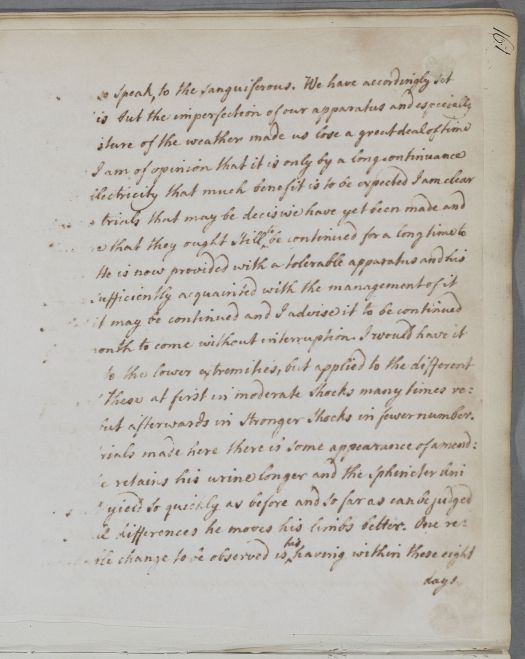 161
so speak, to the sanguiferous. We have accordingly set
is but the imperfection of our apparatus and especially
isture of the weather made us lose a great deal of time
I am of opinion that it is only by a long continuance
lectricity that much benefit is to be expected I am clear
trials that may be decisive have yet been made and
e that they ought still to be continued for a long time to
He is now provided with a tolerable apparatus and his
sufficiently acquainted with the management of it
it may be continued and I advise it to be continued
onth to come without interruption. I would have it
to the lower extremities, but applied to the different
These at first in moderate shocks many times re:
but afterwards in stronger shocks in fewer number.
rials made here there is some appearance of amend:
e retains his urine longer and the sphincter Ani
yield so quickly as before and so far as can be judged
differences he moves his limbs better. One re:
ble change to be observed is his having within these eight
days